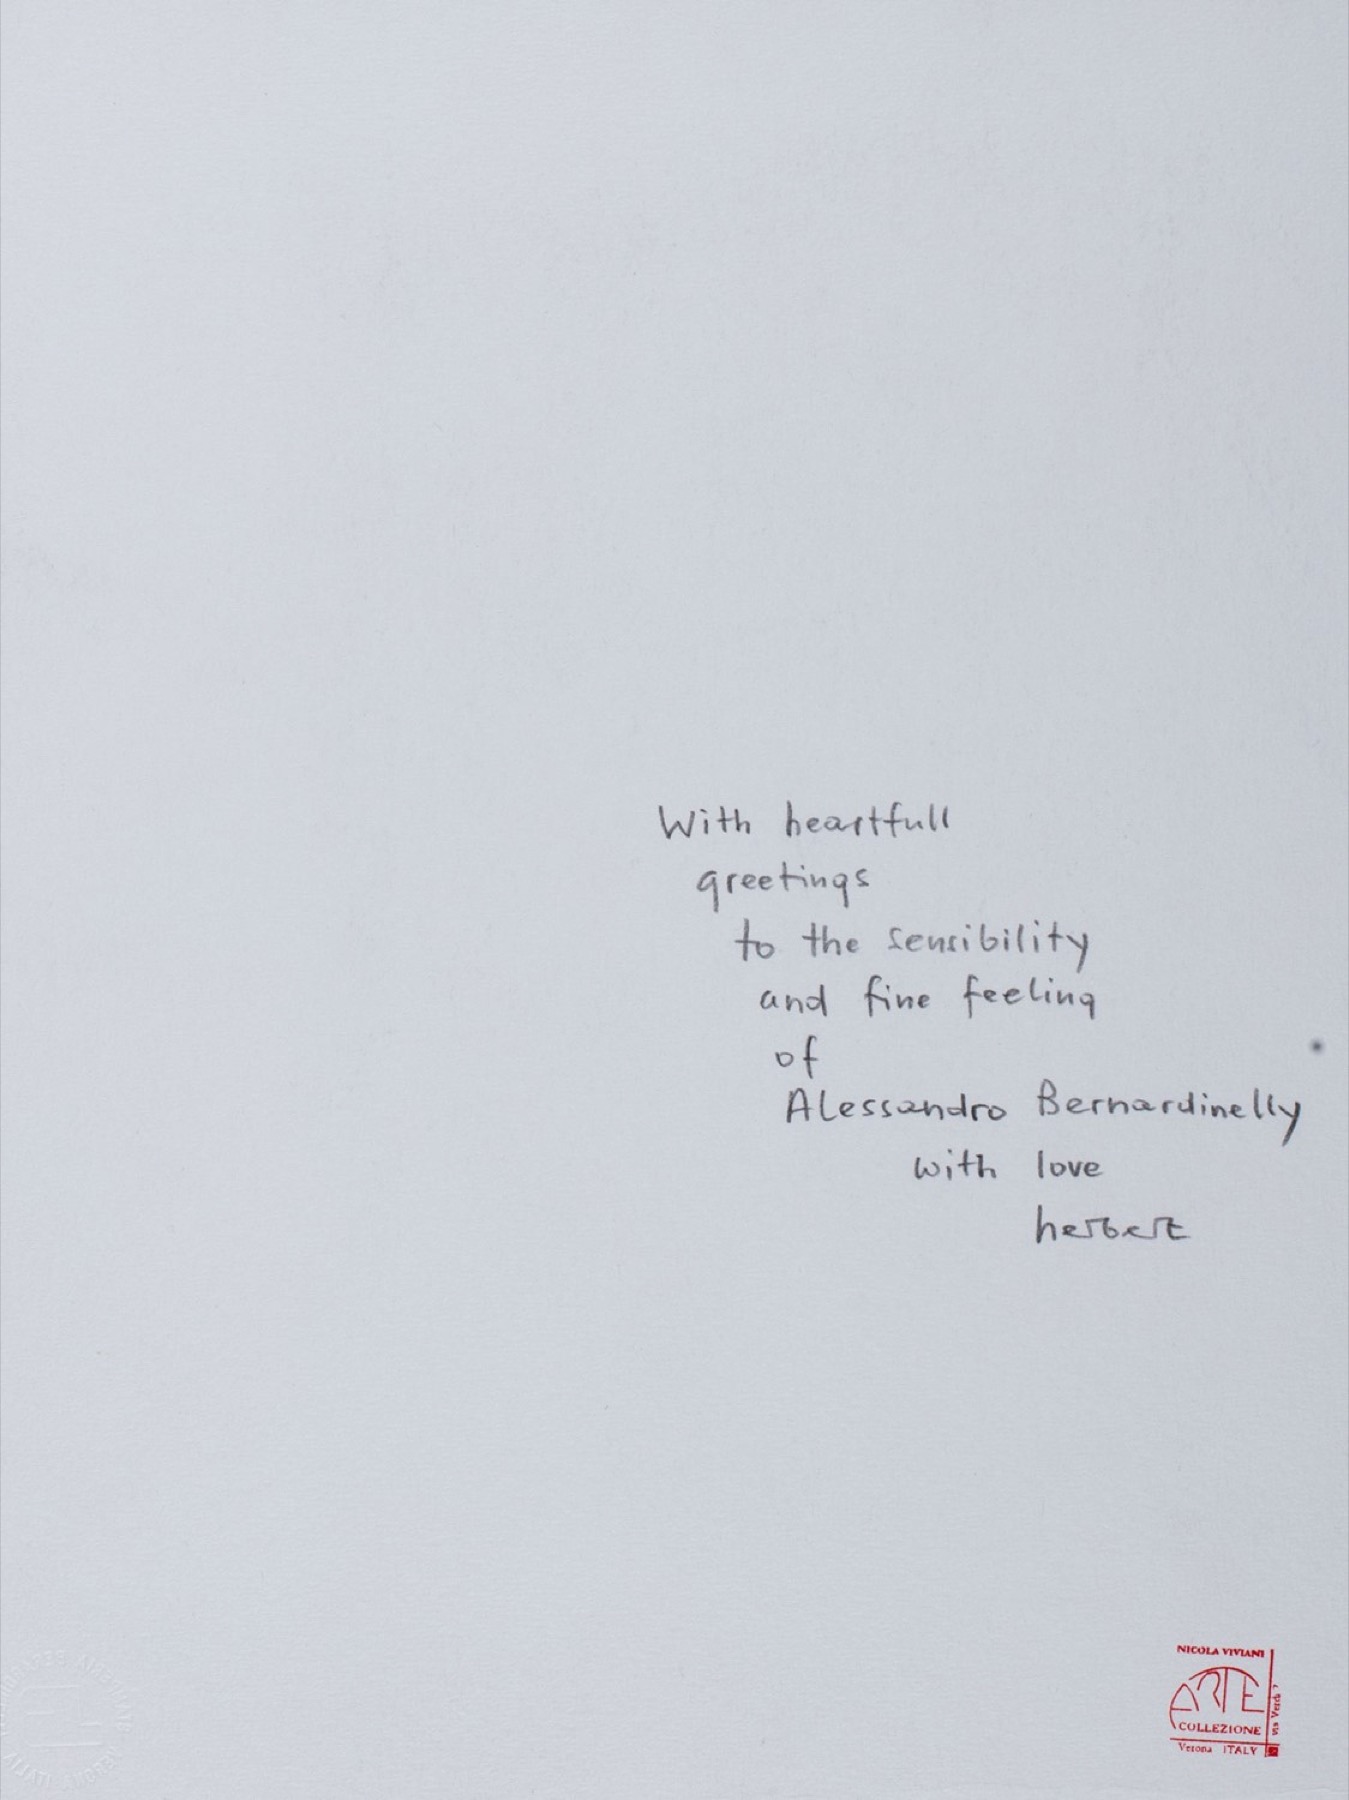 With heartfull
greetings
to the sensibility
and fine feeling
of
Alessandro Bernardinelly
with love
herbert
NICOLA VIVIANI
ARTE
COLLEZIONE
Verona ITALY
via Verdi